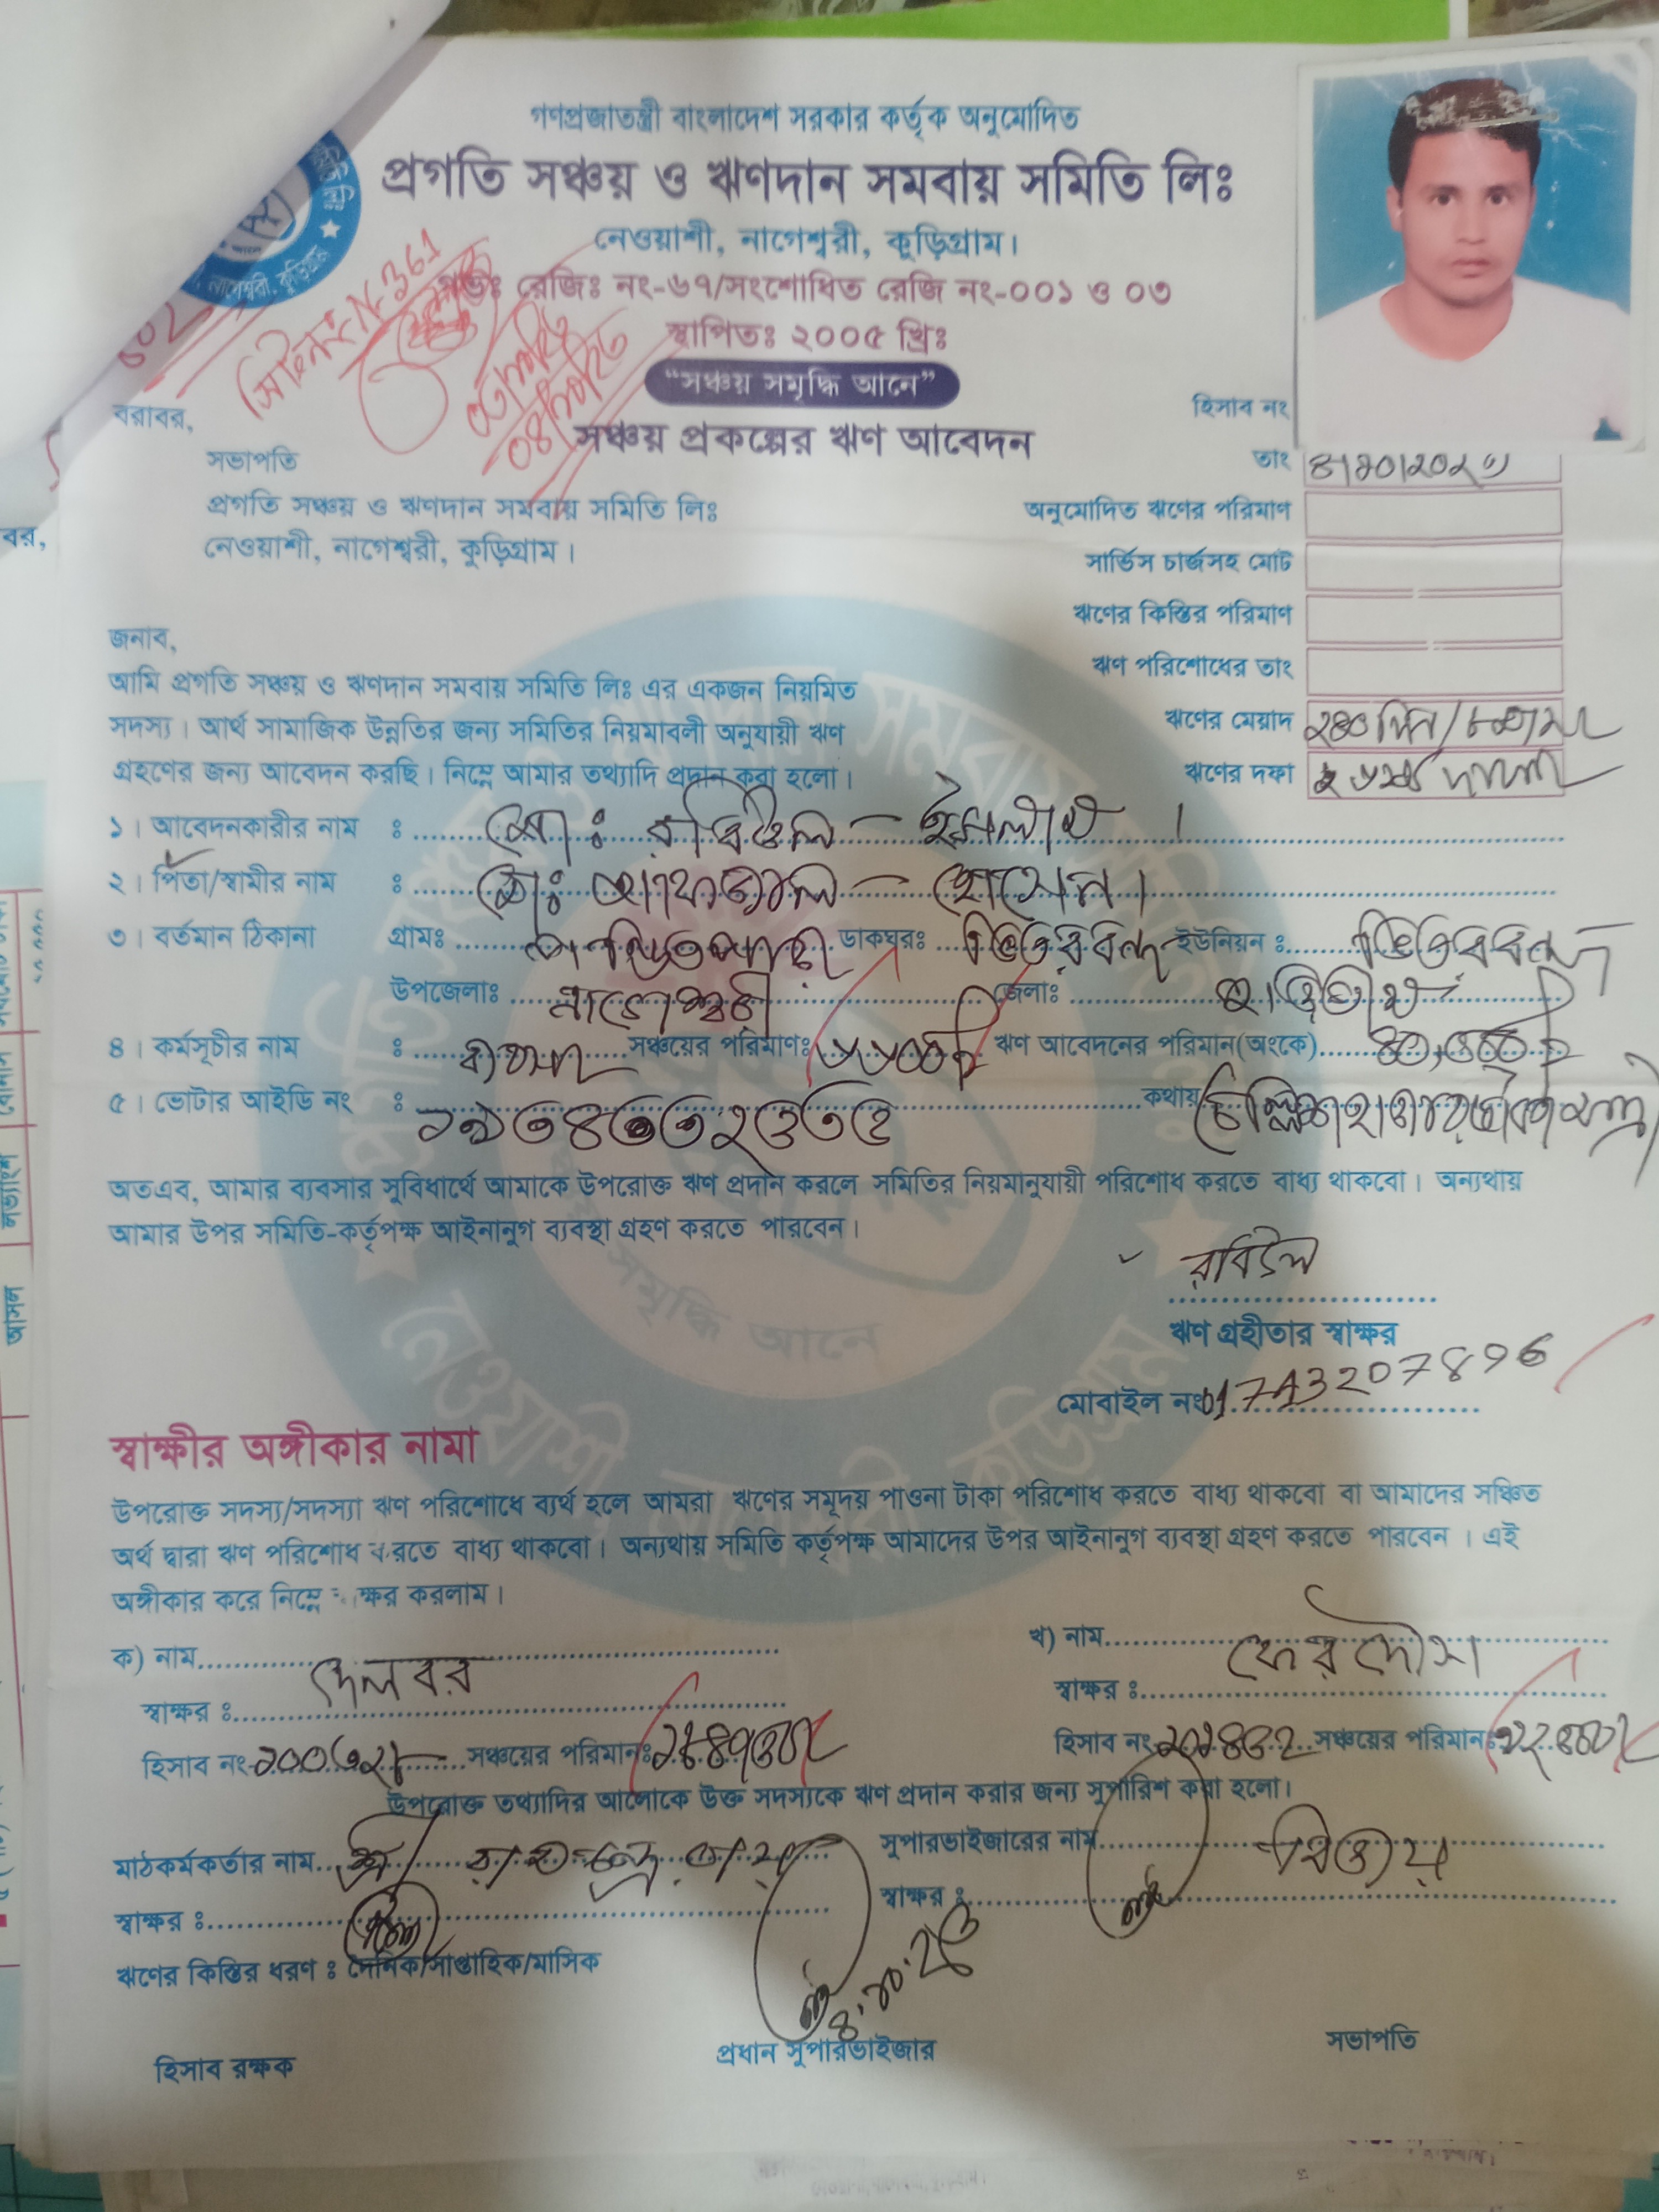 গণপ্রজাতন্ত্রী বাংলাদেশ সরকার কর্তৃক অনুমোদিত
প্রগতি সঞ্চয় ও ঋণদান সমবায় সমিতি লিঃ
নেওয়াশী, নাগেশ্বরী, কুড়িগ্রাম।
গভঃ রেজিঃ নং-৬৭/সংশোধিত রেজি নং-০০১ ও ০৩
স্থাপিতঃ ২০০৫ খ্রিঃ
"সঞ্চয় সমৃদ্ধি আনে"
সঞ্চয় প্রকল্পের ঋণ আবেদন
হিসাব নং
বরাবর,
সভাপতি
তাং ৪/১০/২০২৩
প্রগতি সঞ্চয় ও ঋণদান সমবায় সমিতি লিঃ
অনুমোদিত ঋণের পরিমাণ
নেওয়াশী, নাগেশ্বরী, কুড়িগ্রাম।
সার্ভিস চার্জসহ মোট
ঋণের কিস্তির পরিমাণ
জনাব,
ঋণ পরিশোধের তাং
আমি প্রগতি সঞ্চয় ও ঋণদান সমবায় সমিতি লিঃ এর একজন নিয়মিত
সদস্য। আর্থ সামাজিক উন্নতির জন্য সমিতির নিয়মাবলী অনুযায়ী ঋণ
ঋণের মেয়াদ
গ্রহণের জন্য আবেদন করছি। নিম্নে আমার তথ্যাদি প্রদান করা হলো।
ঋণের দফা
১। আবেদনকারীর নাম ঃ মোঃ রবিউল ইসলাম।
২। পিতা/স্বামীর নাম ঃ মোঃ হোসেন।
৩। বর্তমান ঠিকানা গ্রামঃ ডাকঘরঃ ভিতরবন্দ ইউনিয়ন ঃ ভিতরবন্দ
উপজেলাঃ নাগেশ্বরী জেলাঃ কুড়িগ্রাম
৪। কর্মসূচীর নাম ঃ সঞ্চয়ের পরিমাণঃ ঋণ আবেদনের পরিমান(অংকে) ৪০,০০০/
৫। ভোটার আইডি নং ঃ কথায় চল্লিশ হাজার টাকা মাত্র
অতএব, আমার ব্যবসার সুবিধার্থে আমাকে উপরোক্ত ঋণ প্রদান করলে সমিতির নিয়মানুযায়ী পরিশোধ করতে বাধ্য থাকবো। অন্যথায়
আমার উপর সমিতি-কর্তৃপক্ষ আইনানুগ ব্যবস্থা গ্রহণ করতে পারবেন।
রবিউল
ঋণ গ্রহীতার স্বাক্ষর
মোবাইল নং 01743207896
স্বাক্ষীর অঙ্গীকার নামা
উপরোক্ত সদস্য/সদস্যা ঋণ পরিশোধে ব্যর্থ হলে আমরা ঋণের সমূদয় পাওনা টাকা পরিশোধ করতে বাধ্য থাকবো বা আমাদের সঞ্চিত
অর্থ দ্বারা ঋণ পরিশোধ করতে বাধ্য থাকবো। অন্যথায় সমিতি কর্তৃপক্ষ আমাদের উপর আইনানুগ ব্যবস্থা গ্রহণ করতে পারবেন। এই
অঙ্গীকার করে নিম্নে স্বাক্ষর করলাম।
ক) নাম দেলবর
খ) নাম ফেরদৌসা
স্বাক্ষর ঃ
স্বাক্ষর ঃ
হিসাব নং- সঞ্চয়ের পরিমানঃ
হিসাব নং- সঞ্চয়ের পরিমানঃ
উপরোক্ত তথ্যাদির আলোকে উক্ত সদস্যকে ঋণ প্রদান করার জন্য সুপারিশ করা হলো।
মাঠকর্মকর্তার নাম শ্রী রায়
সুপারভাইজারের নাম
স্বাক্ষর ঃ
স্বাক্ষর ঃ
ঋণের কিস্তির ধরণ ঃ দৈনিক/সাপ্তাহিক/মাসিক
৪.১০.২৩
হিসাব রক্ষক
প্রধান সুপারভাইজার
সভাপতি